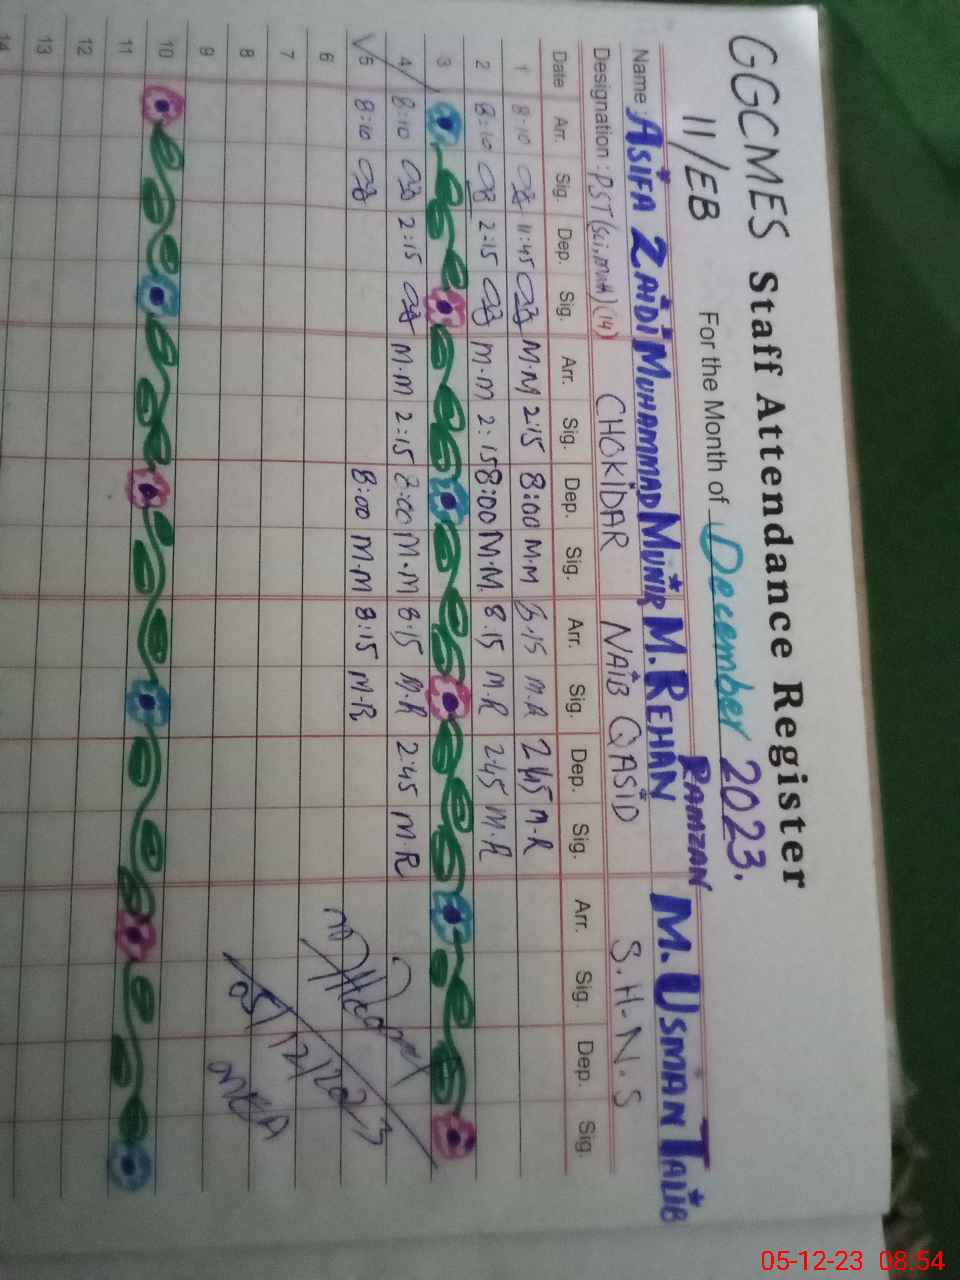 GGCMES Staff Attendance Register
11/EB For the Month of December 2023.
Name : ASIFA ZAIDI MUHAMMAD MUNIR M. REHAN RAMZAN M. USMAN TALIB
Designation : PST (sci, math) (14) CHOKIDAR NAIB QASID S.H-N.S
Date Arr. Sig. Dep. Sig. Arr. Sig. Dep. Sig. Arr. Sig. Dep. Sig. Arr. Sig. Dep. Sig.
1 8:10 11:45 M.M 2:15 8:00 M.M 8:15 M.R 2:45 M.R
2 8:10 2:15 M.M 2:15 8:00 M.M. 8.15 M.R 2:45 M.R
3
4 8:10 2:15 M.M 2:15 8:00 M.M 8:15 M.R 2:45 M.R
5 8:10 8:00 M.M 8:15 M-R
6
7
8 05/12/2023
9 MEA
10
11
12
13
14
05-12-23 08:54